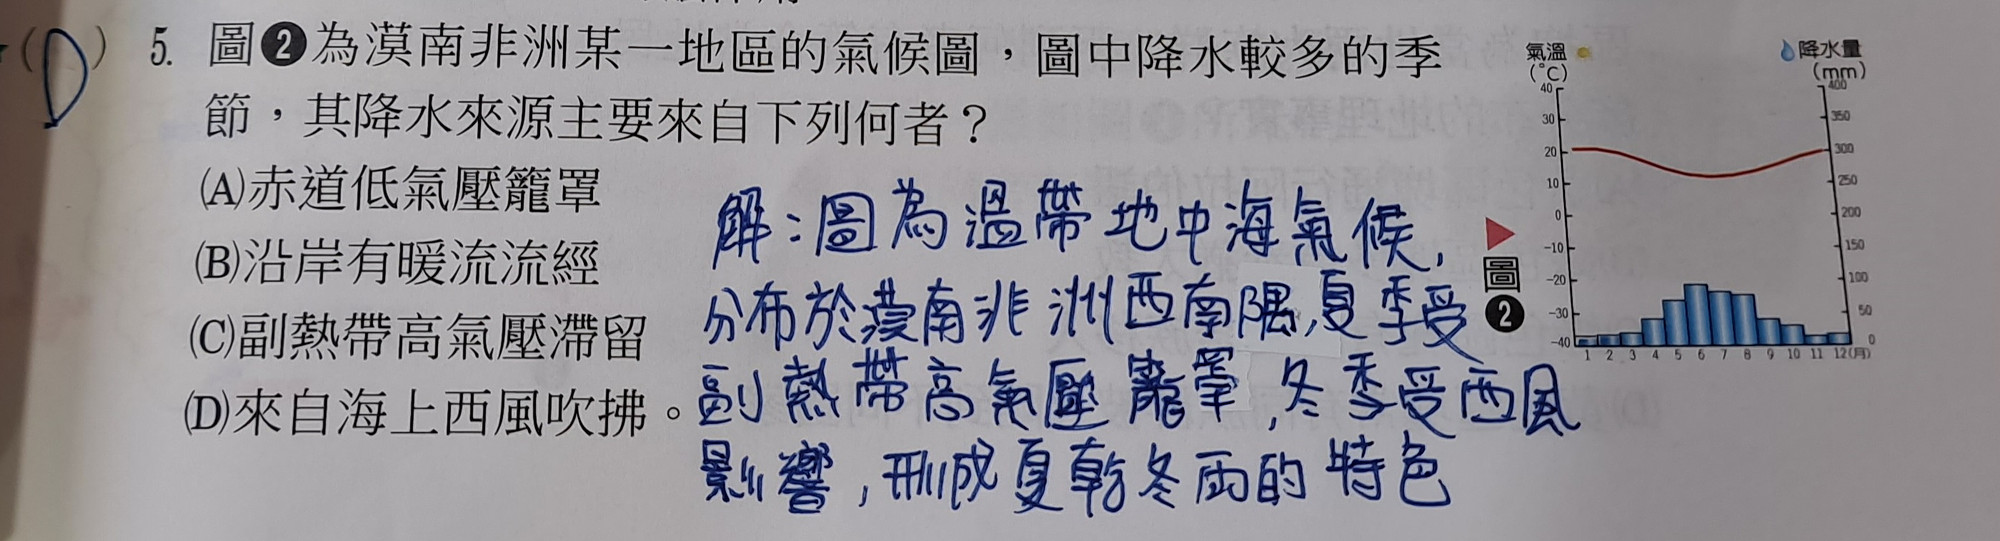 (D) 5. 圖❷為漠南非洲某一地區的氣候圖，圖中降水較多的季
節，其降水來源主要來自下列何者？
(A)赤道低氣壓籠罩
(B)沿岸有暖流流經
(C)副熱帶高氣壓滯留
(D)來自海上西風吹拂。
解：圖為溫帶地中海氣候，
分布於漠南非洲西南隅，夏季受
副熱帶高氣壓籠罩，冬季受西風
影響，形成夏乾冬雨的特色
氣溫 降水量
(℃) (mm)
40 400
30 350
20 300
10 250
0 200
-10 150
-20 100
-30 50
-40 0
1 2 3 4 5 6 7 8 9 10 11 12(月)
圖
❷